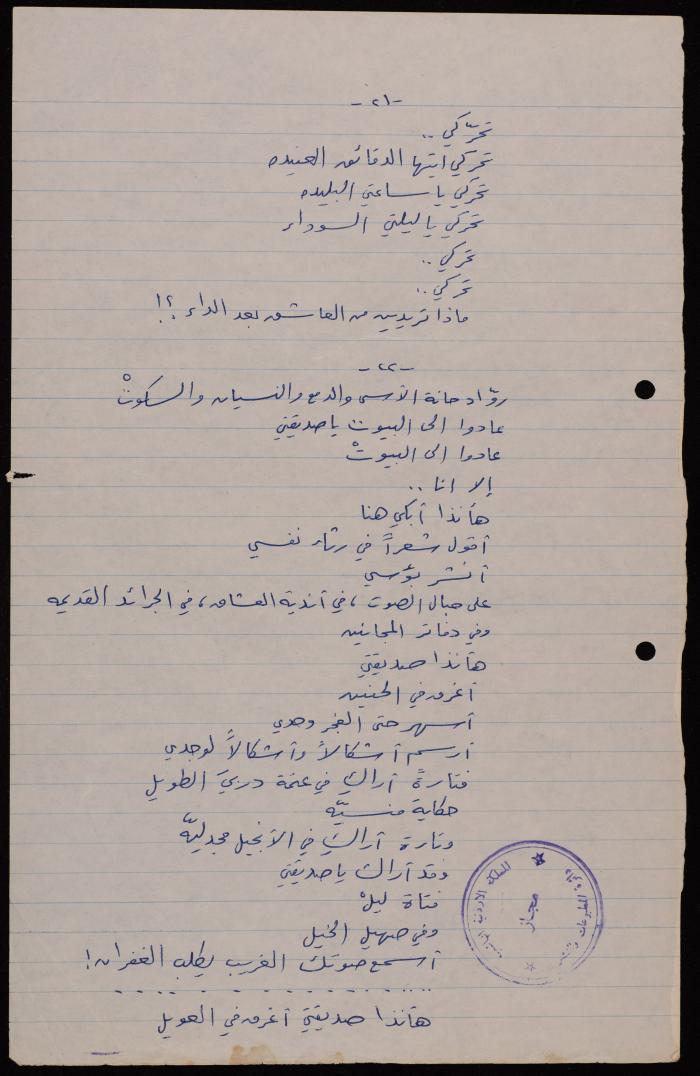 -٢١-
تحرّكي ..
تحركي ايتها الدقائق العنيده
تحركي يا ساعتي البليده
تحركي يا ليلتي السوداء
تحركي ..
تحركي ..
ماذا تريدين من العاشق بعد الداء ؟!
-٢٢-
روّاد حانة الأسى والدمع والنسيان والسكوتْ
عادوا الى البيوت يا صديقتي
عادوا الى البيوتْ
إلا انا ..
هأنذا أبكي هنا
أقول شعراً في رثاء نفسي
أنشر بؤسي
على حبال الصوت ، في أندية العشاق ، في الجرائد القديمه
وفي دفاتر المجانين
هأنذا صديقتي
أغرق في الحنين
أسهر حتى الفجر وحدي
أرسم أشكالاً وأشكالاً لوجدي
فتارةً أراكِ في عتمة دربيَ الطويل
حكاية منسيّه
وتارة أراكِ في الأنجيل مجدليّه
وقد أراك يا صديقتي
فتاة ليلْ
وفي صهيل الخيل
أسمع صوتك الغريب يطلب الغفران !
. . . . . . . . . . . . . . . .
هأنذا صديقتي أغرق في العويل
المملكة الاردنية
مجاز
المطبوعات